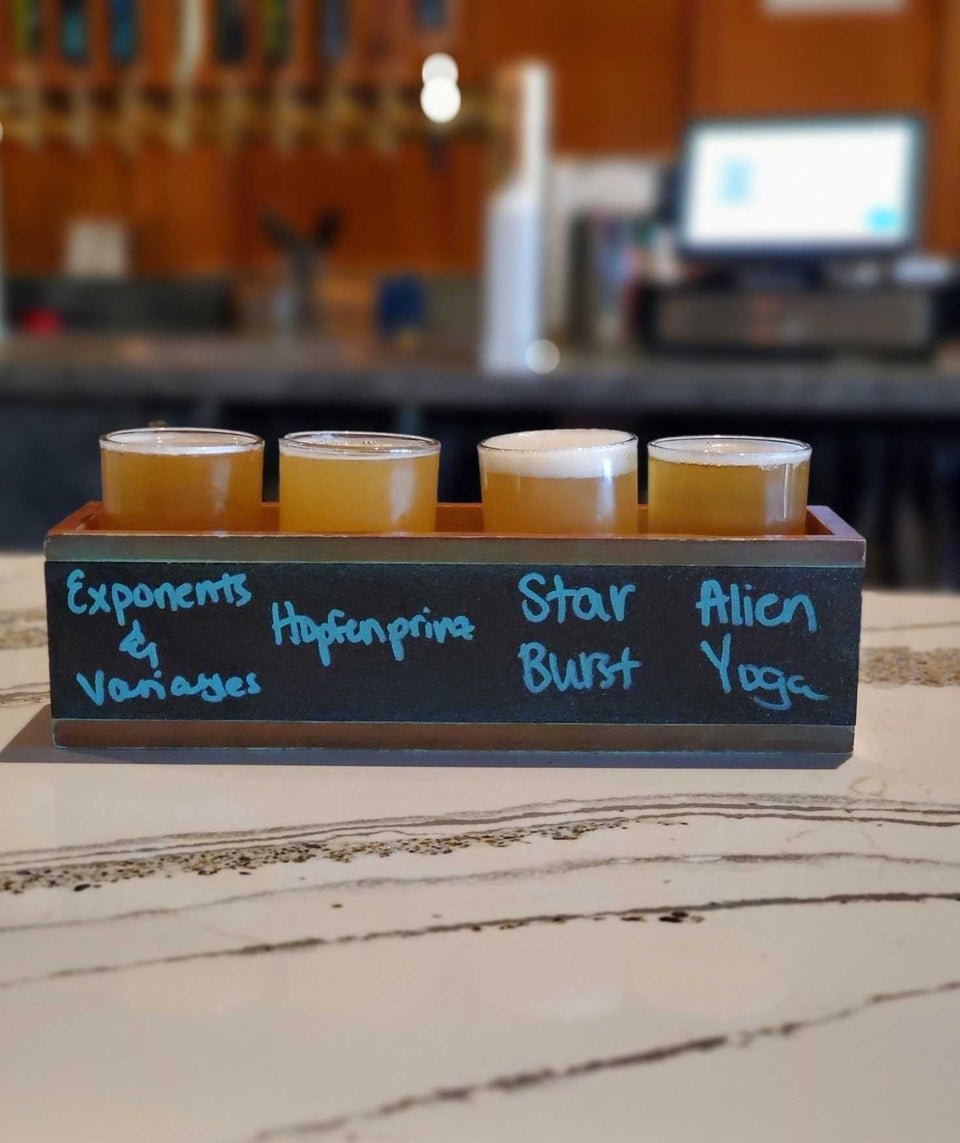 Exponents
&
Variables
Hopfenprinz
Star
Burst
Alien
Yoga